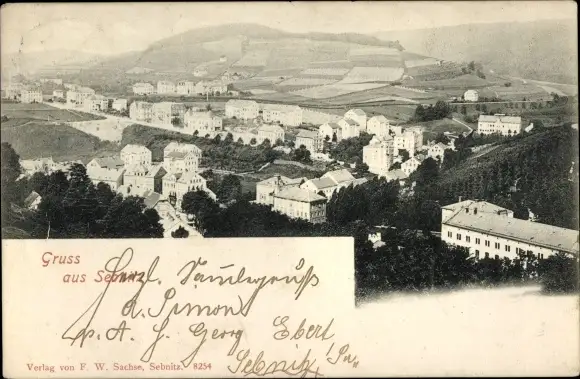 Gruss
aus Sebnitz
Herzl. Sammlergruß
A. Simon
p. A. H. Georg Ebert
Sebnitz i/Sa.
Verlag von F. W. Sachse, Sebnitz. 8254